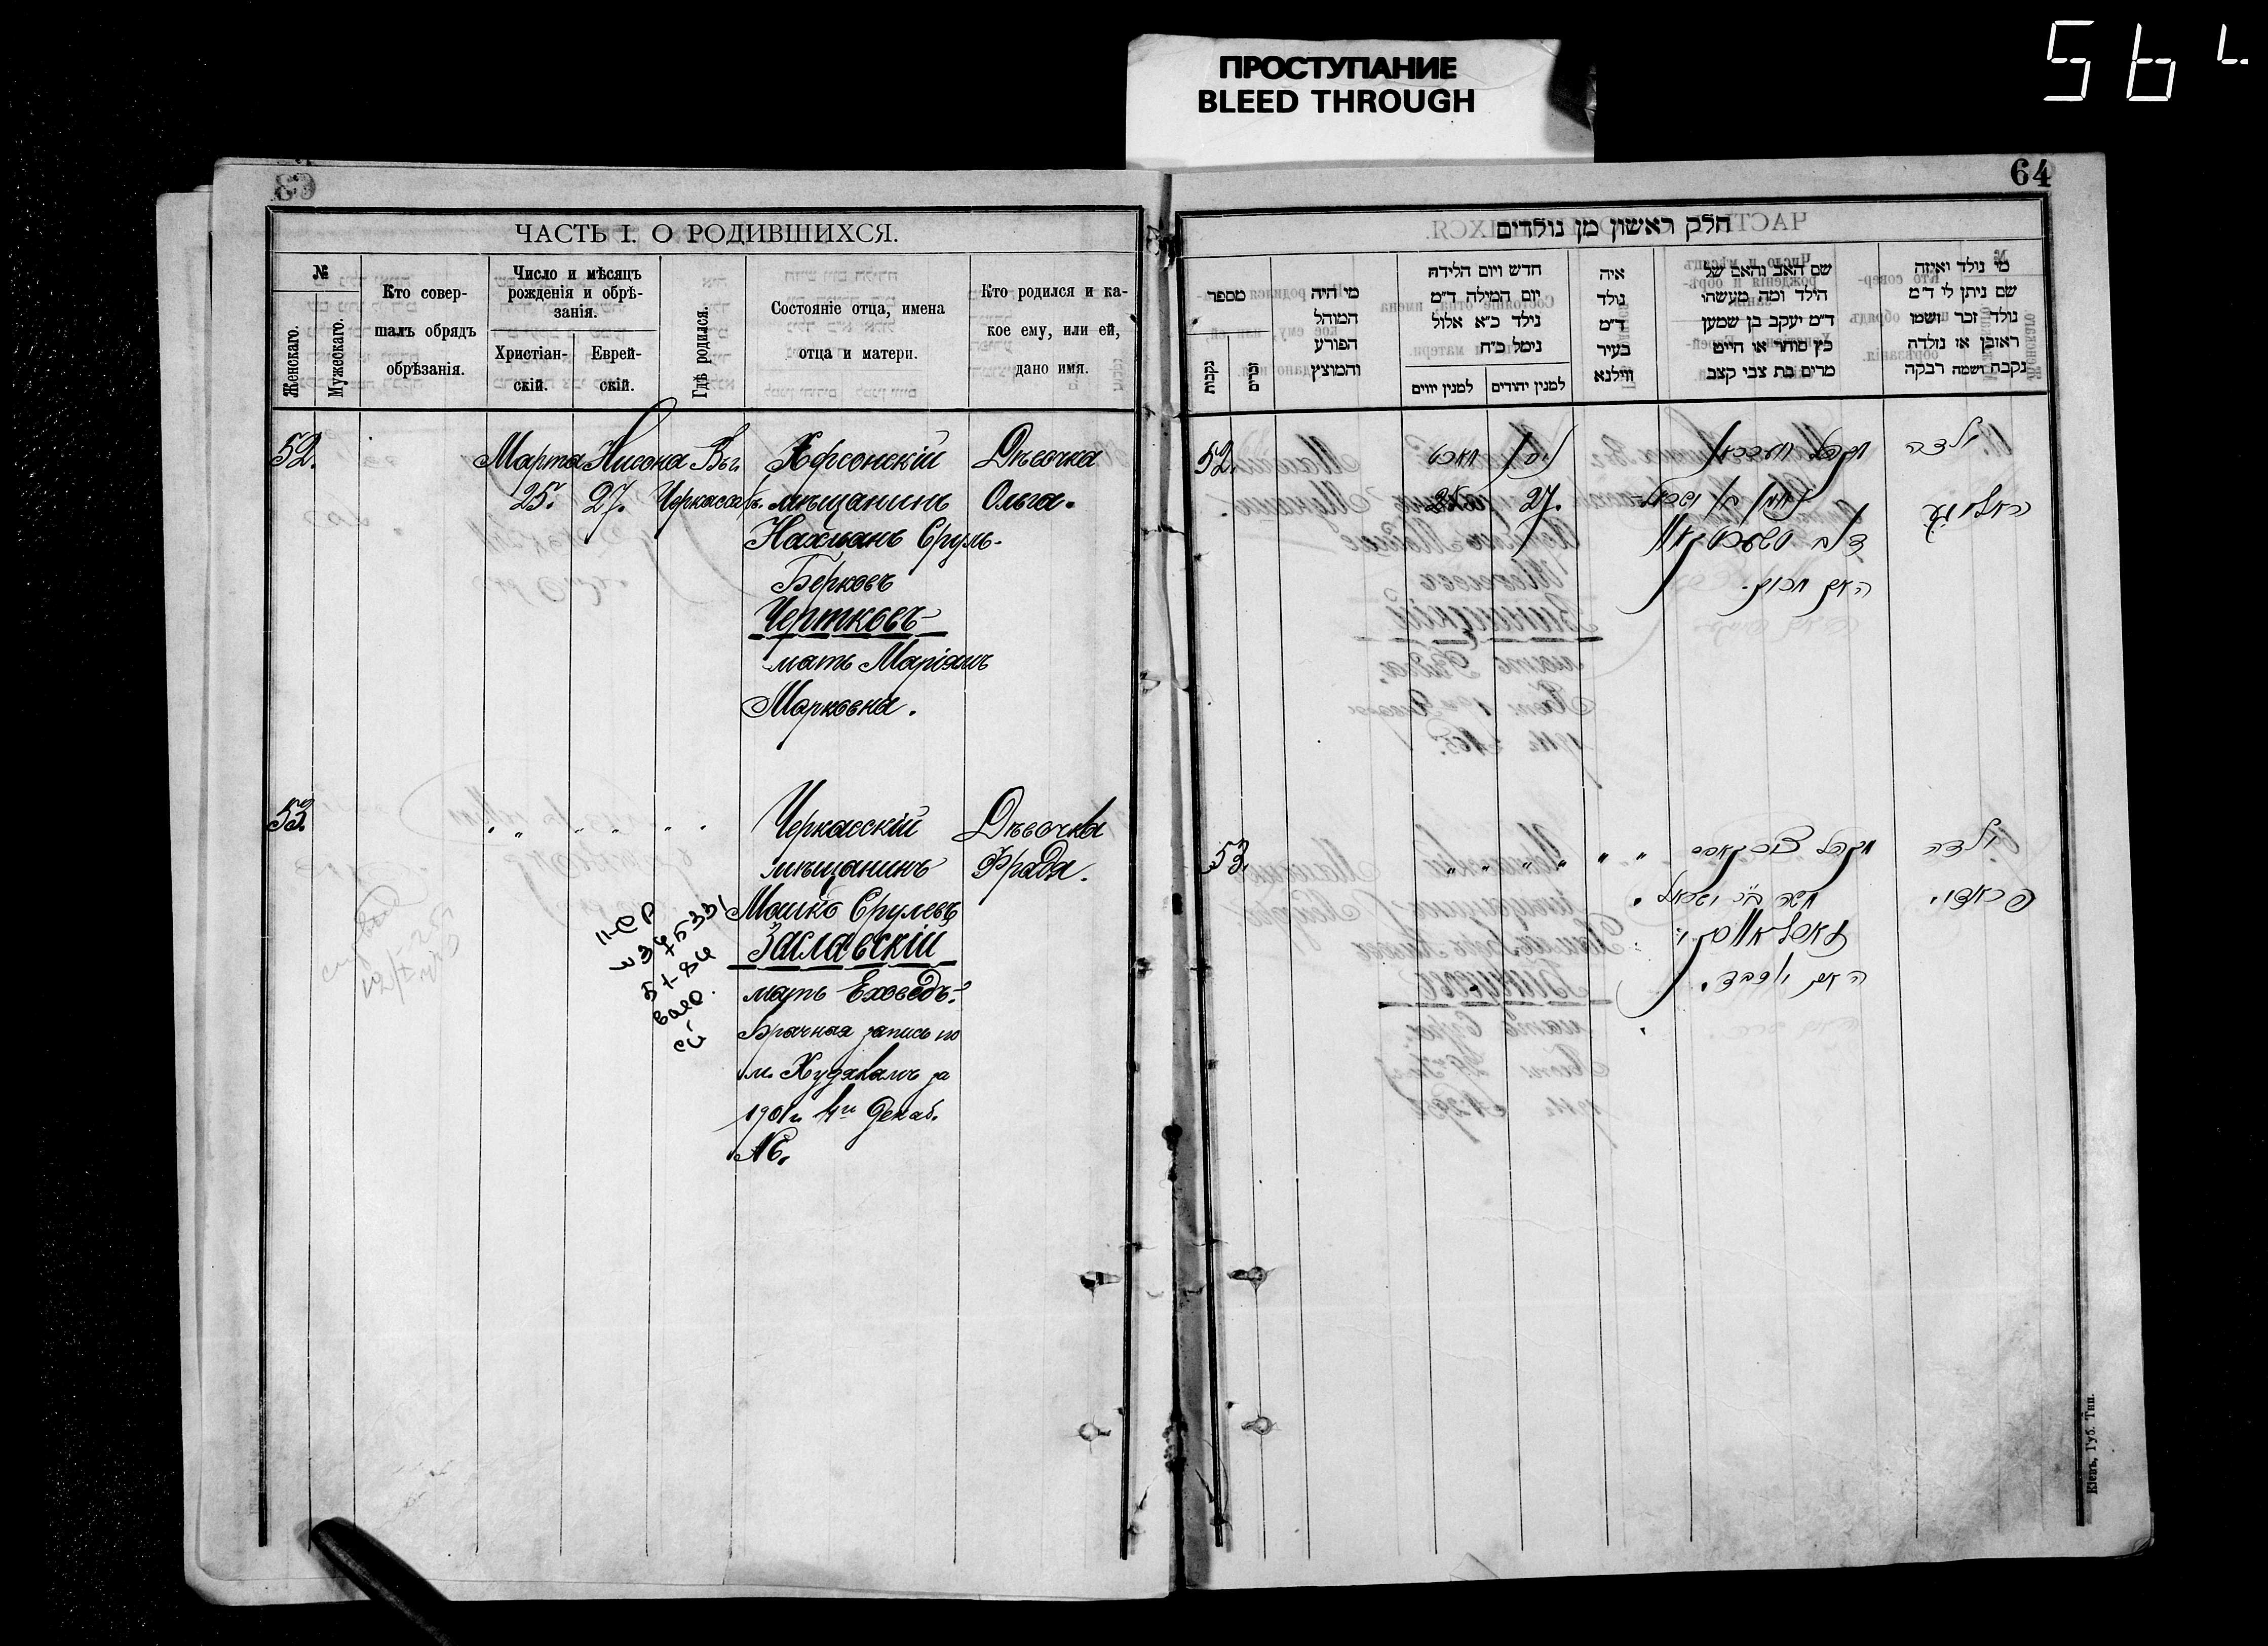 564
ПРОСТУПАНИЕ
BLEED THROUGH
ЧАСТЬ I. О РОДИВШИХСЯ.
№
Женскаго.
Мужескаго.
Кто совер-
шалъ обрядъ
обрѣзанія.
Число и мѣсяцъ
рожденія и обрѣ-
занія.
Христіан-
скій.
Еврей-
скій.
Гдѣ родился.
Состояніе отца, имена
отца и матери.
Кто родился и ка-
кое ему, или ей,
дано имя.
52.
Марта
25.
Нисона
27.
Въ г.
Черкассахъ.
Херсонскій
мѣщанинъ
Нахманъ Сруль-
Берковъ
Чертковъ
мать Маріямъ
Марковна.
Дѣвочка
Ольга.
53.
Черкасскій
мѣщанинъ
Мошко Срулевъ
Заславскій
мать Еховедъ.
Брачная запись по
м. Худякамъ за
1901 г. 4го Декаб.
№ 6.
Дѣвочка
Фрада.
64
חלק ראשון מן נולדים
מספר
נקבות
זכרים
מי היה
המוהל
הפורע
והמוצץ
חדש ויום הלידה
יום המילה ד״מ
נילד כ״א אלול
נימל כ״ח
למנין יווים
למנין יהודים
איה
נולד
ד״מ
בעיר
ווילנא
שם האב והאם של
הילד ומה מעשהו
ד״מ יעקב בן שמען
כץ סוחר או חייט
מרים בת צבי קצב
מי נולד ואיזה
שם ניתן לו ד״מ
נולד זכר ושמו
ראובן או נולדה
נקבה ושמה רבקה
52.
27.
ניסן
ילדה
האם מרים.
53.
ילדה
משה ב״ר ישראל
זאסלאווסקי
האם יוכבד.
פראדי.
Кіевъ, Губ. Тип.